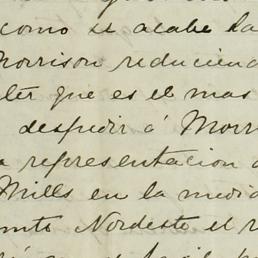 como se acabe la
Morrison reducien
que es el mas
despedir á Morr
representacion
Mills en la medi
Nordeste el